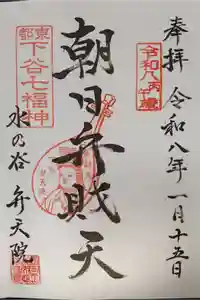 奉拝
令和八年一月十五日
令和八丙午歳
朝日弁財天
東都
下谷七福神
水の谷
弁天院